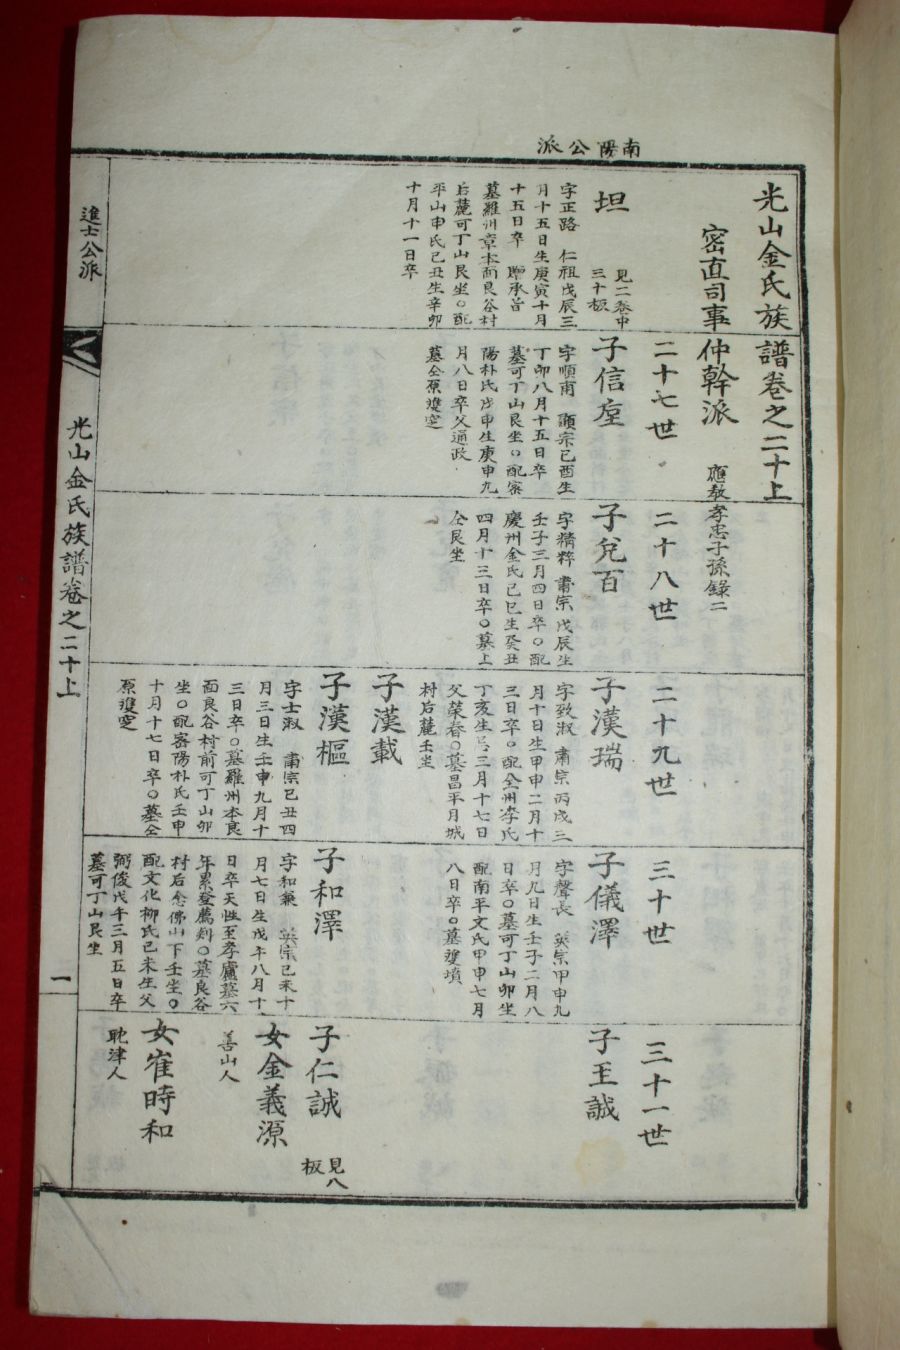 南陽公派
光山金氏族譜卷之二十上
密直司事仲幹派
應教孝忠子孫錄二
坦
見二卷中
三十板
字正路 仁祖戊辰三
月十五日生庚寅十月
十五日卒 贈承旨
墓羅州章本面良谷村
后麓可丁山艮坐○配
平山申氏己丑生辛卯
十月十一日卒
二十七世
子信
字順甫 顯宗己酉生
丁卯八月十五日卒
墓可丁山艮坐○配密
陽朴氏戊申生庚申九
月八日卒父通政
墓仝原雙窆
二十八世
子兌百
字精粹 肅宗戊辰生
壬子三月四日卒○配
慶州金氏己巳生癸丑
四月十三日卒○墓上
仝艮坐
二十九世
子漢瑞
字致淑 肅宗丙戌三
月十日生甲申二月十
三日卒○配全州李氏
丁亥生 三月十七日
父榮春○墓昌平月城
村后麓壬坐
子漢載
子漢樞
字士淑 肅宗己丑四
月三日生壬申九月十
三日卒○墓羅州本良
面良谷村前可丁山卯
坐○配密陽朴氏壬申
十月十七日卒○墓仝
原雙窆
三十世
子儀澤
字聲長 英宗甲申九
月九日生壬子二月八
日卒○墓可丁山卯坐
配南平文氏甲申七月
八日卒○墓雙墳
子和澤
字和兼 英宗己未十
月七日生戊午八月十
日卒天性至孝廬墓六
年累登薦剡○墓良谷
村后念佛山下壬坐○
配文化柳氏己未生父
弼俊戊午三月五日卒
墓可丁山艮坐
三十一世
子王誠
子仁誠
見八
板
女金義源
善山人
女崔時和
耽津人
進士公派
光山金氏族譜卷之二十上
一